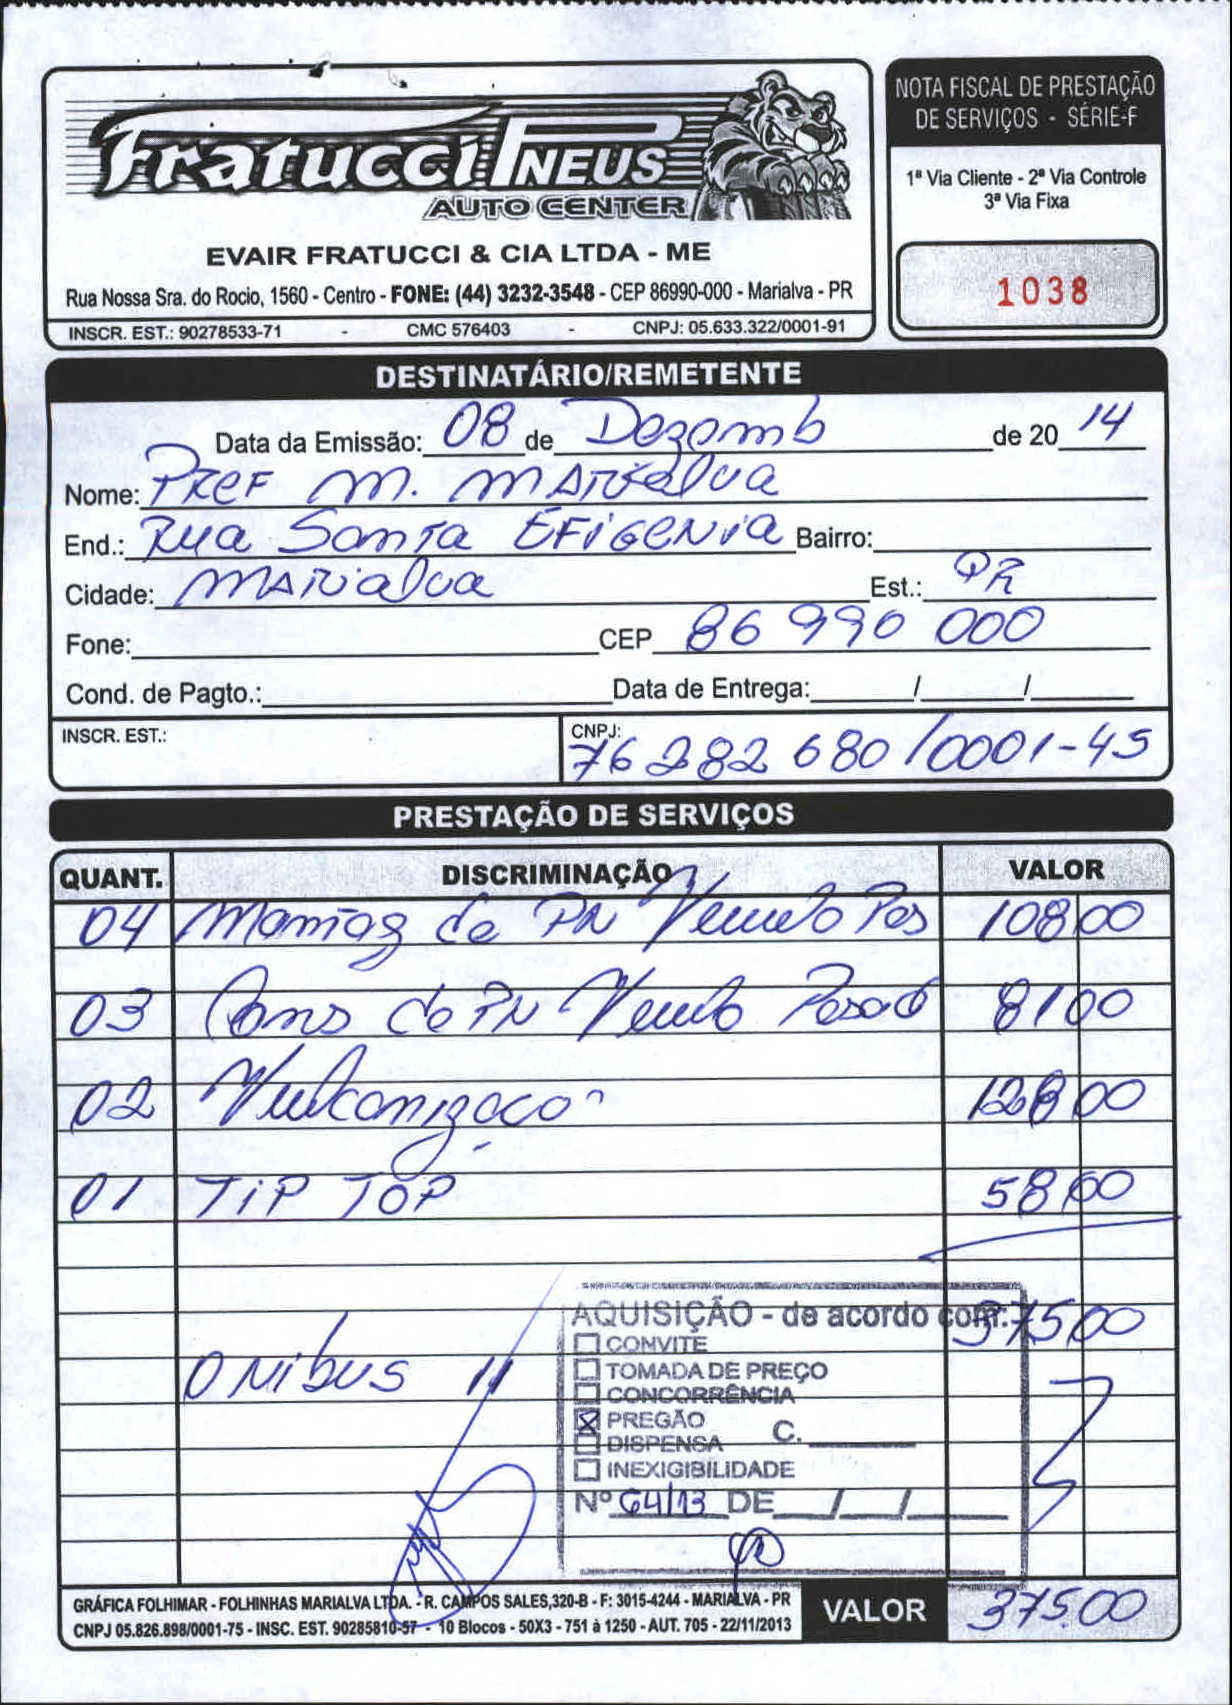 Fratucci PNEUS
AUTO CENTER
EVAIR FRATUCCI & CIA LTDA - ME
Rua Nossa Sra. do Rocio, 1560 - Centro - FONE: (44) 3232-3548 - CEP 86990-000 - Marialva - PR
INSCR. EST.: 90278533-71 - CMC 576403 - CNPJ: 05.633.322/0001-91
NOTA FISCAL DE PRESTAÇÃO
DE SERVIÇOS - SÉRIE-F
1ª Via Cliente - 2ª Via Controle
3ª Via Fixa
1038
DESTINATÁRIO/REMETENTE
Data da Emissão: 08 de Dezemb de 20 14
Nome: PREF M. MARIALVA
End.: Rua Santa EFIGENIA Bairro:
Cidade: MARIALVA Est.: PR
Fone: CEP 86 990 000
Cond. de Pagto.: Data de Entrega: / /
INSCR. EST.: CNPJ: 76 282 680/0001-45
PRESTAÇÃO DE SERVIÇOS
QUANT. DISCRIMINAÇÃO VALOR
04 Montag de PN Veiculo Pes 108 00
03 Cons de PN Veiculo Pesado 81 00
02 Vulcanizaçao 128 00
01 TIP TOP 58 00
AQUISIÇÃO - de acordo com: 375 00
CONVITE
ONIBUS 11 TOMADA DE PREÇO
CONCORRÊNCIA
PREGÃO
DISPENSA C.
INEXIGIBILIDADE
Nº 64/13 DE / /
GRÁFICA FOLHIMAR - FOLHINHAS MARIALVA LTDA. - R. CAMPOS SALES,320-B - F: 3015-4244 - MARIALVA - PR
CNPJ 05.826.898/0001-75 - INSC. EST. 90285810-57 - 10 Blocos - 50X3 - 751 à 1250 - AUT. 705 - 22/11/2013
VALOR 375.00